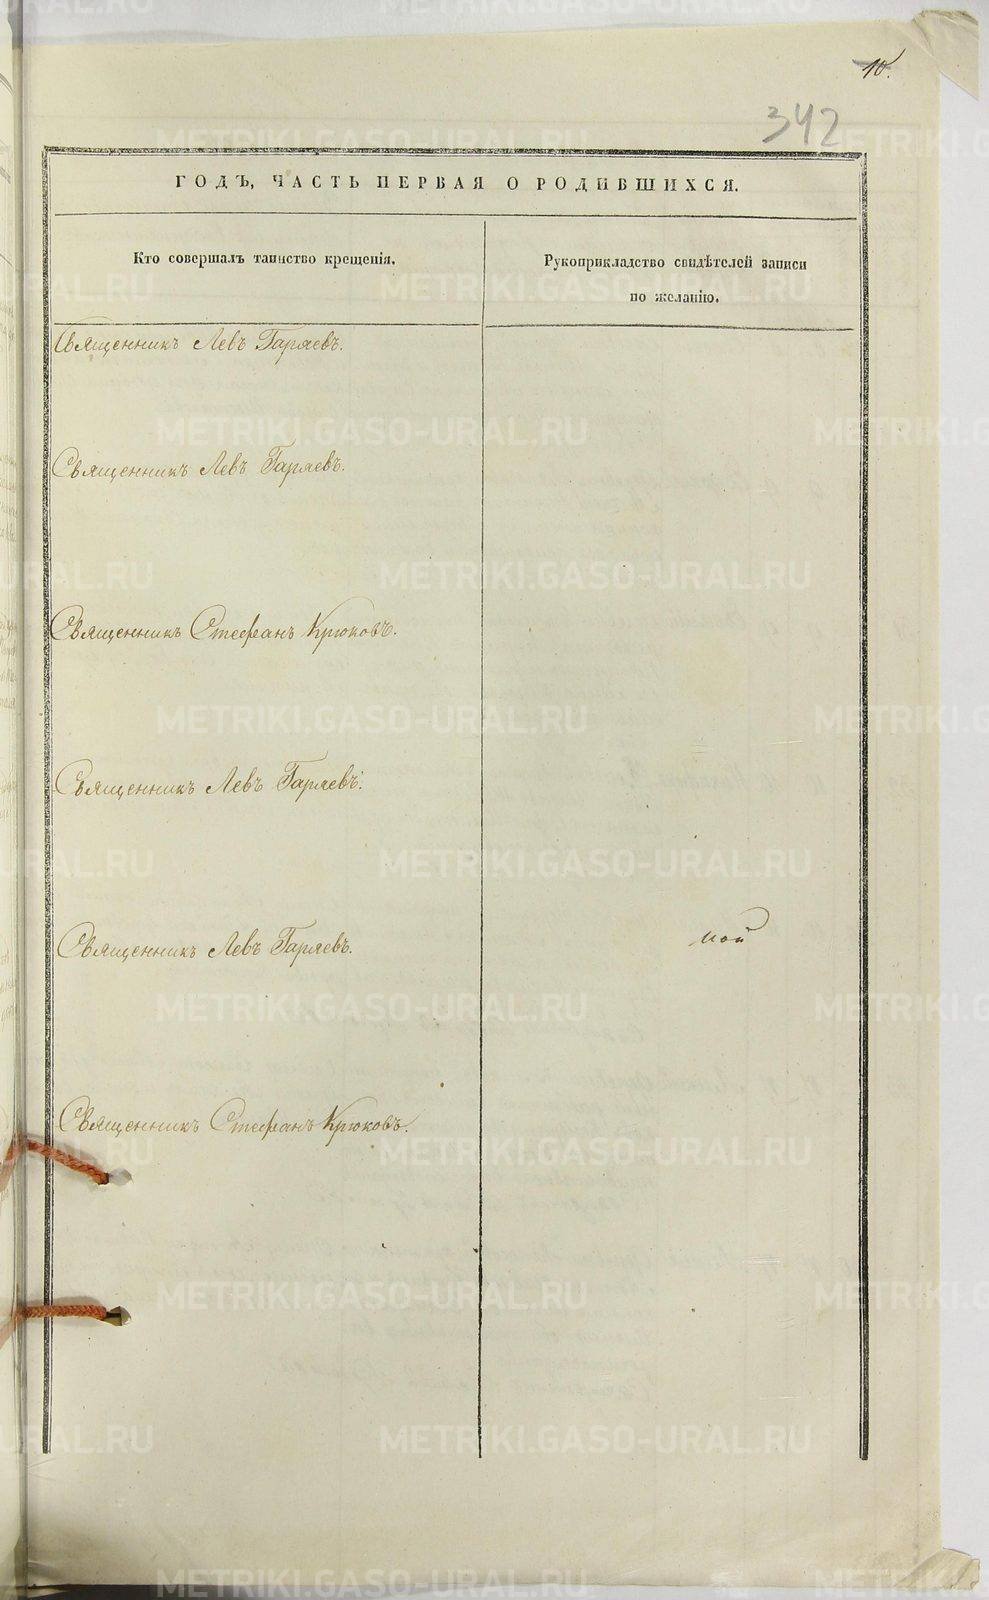 10.
342
ГОДЪ, ЧАСТЬ ПЕРВАЯ О РОДИВШИХСЯ.
Кто совершалъ таинство крещенія.
Рукоприкладство свидѣтелей записи
по желанію.
Священникъ Левъ Гаряевъ.
Священникъ Левъ Гаряевъ.
Священникъ Стефанъ Крюковъ.
Священникъ Левъ Гаряевъ.
Священникъ Левъ Гаряевъ.
мой
Священникъ Стефанъ Крюковъ.
METRIKI.GASO-URAL.RU